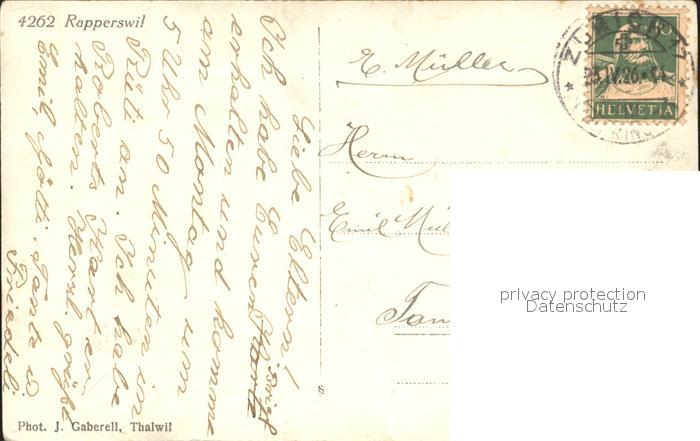 4262 Rapperswil
Liebe Eltern!
Ich habe Euren Brief
erhalten und komme
am Montag um
5 Uhr 50 Minuten in
Rüti an. Ich habe
Roberts Karte er
halten. Herzl. grüßt
Emil, Götti, Tante u
Friedeli
Phot. J. Gaberell, Thalwil
E. Müller
Herrn
Emil Mül
Tan
ZÜRICH
25.IV.26
HELVETIA
privacy protection
Datenschutz